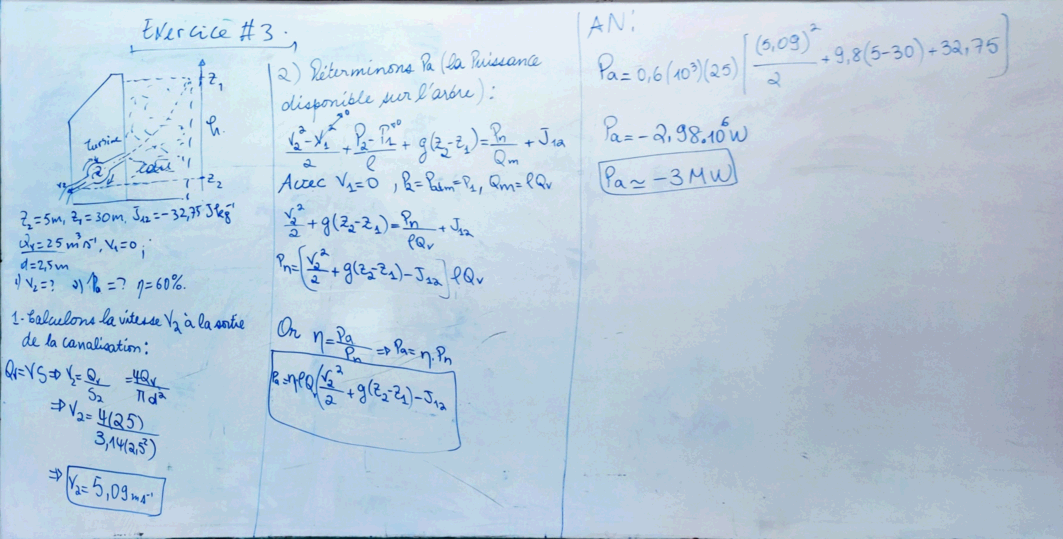 Exercice #3.
turbine
Z₁
h.
Z₂
Z₂=5m, Z₁=30m, J₁₂=-32,75 Jkg⁻¹
Qv=25 m³s⁻¹, V₁=0 ;
d=2,5m
1) V₂=? 2) Pa=? η=60%.
1- Calculons la vitesse V₂ à la sortie
de la canalisation:
Qv=VS ⇒ V₂=Qv/S₂ =4Qv/πd²
⇒ V₂=4(25)/3,14(2,5²)
⇒ V₂=5,09ms⁻¹
2) Déterminons Pa (la Puissance
disponible sur l'arbre):
(V₂²-V₁²)/2 + (P₂-P₁)/ρ + g(Z₂-Z₁)=Pn/Qm + J₁₂
Avec V₁=0, P₂=Patm=P₁, Qm=ρQv
V₂²/2 + g(Z₂-Z₁)=Pn/ρQv + J₁₂
Pn=[V₂²/2 + g(Z₂-Z₁)-J₁₂] ρQv
Or η=Pa/Pn ⇒ Pa=η.Pn
Pa=ηρQv(V₂²/2 + g(Z₂-Z₁)-J₁₂
AN:
Pa=0,6(10³)(25)[(5,09)²/2 + 9,8(5-30)+32,75]
Pa=-2,98.10⁶W
Pa≃-3MW